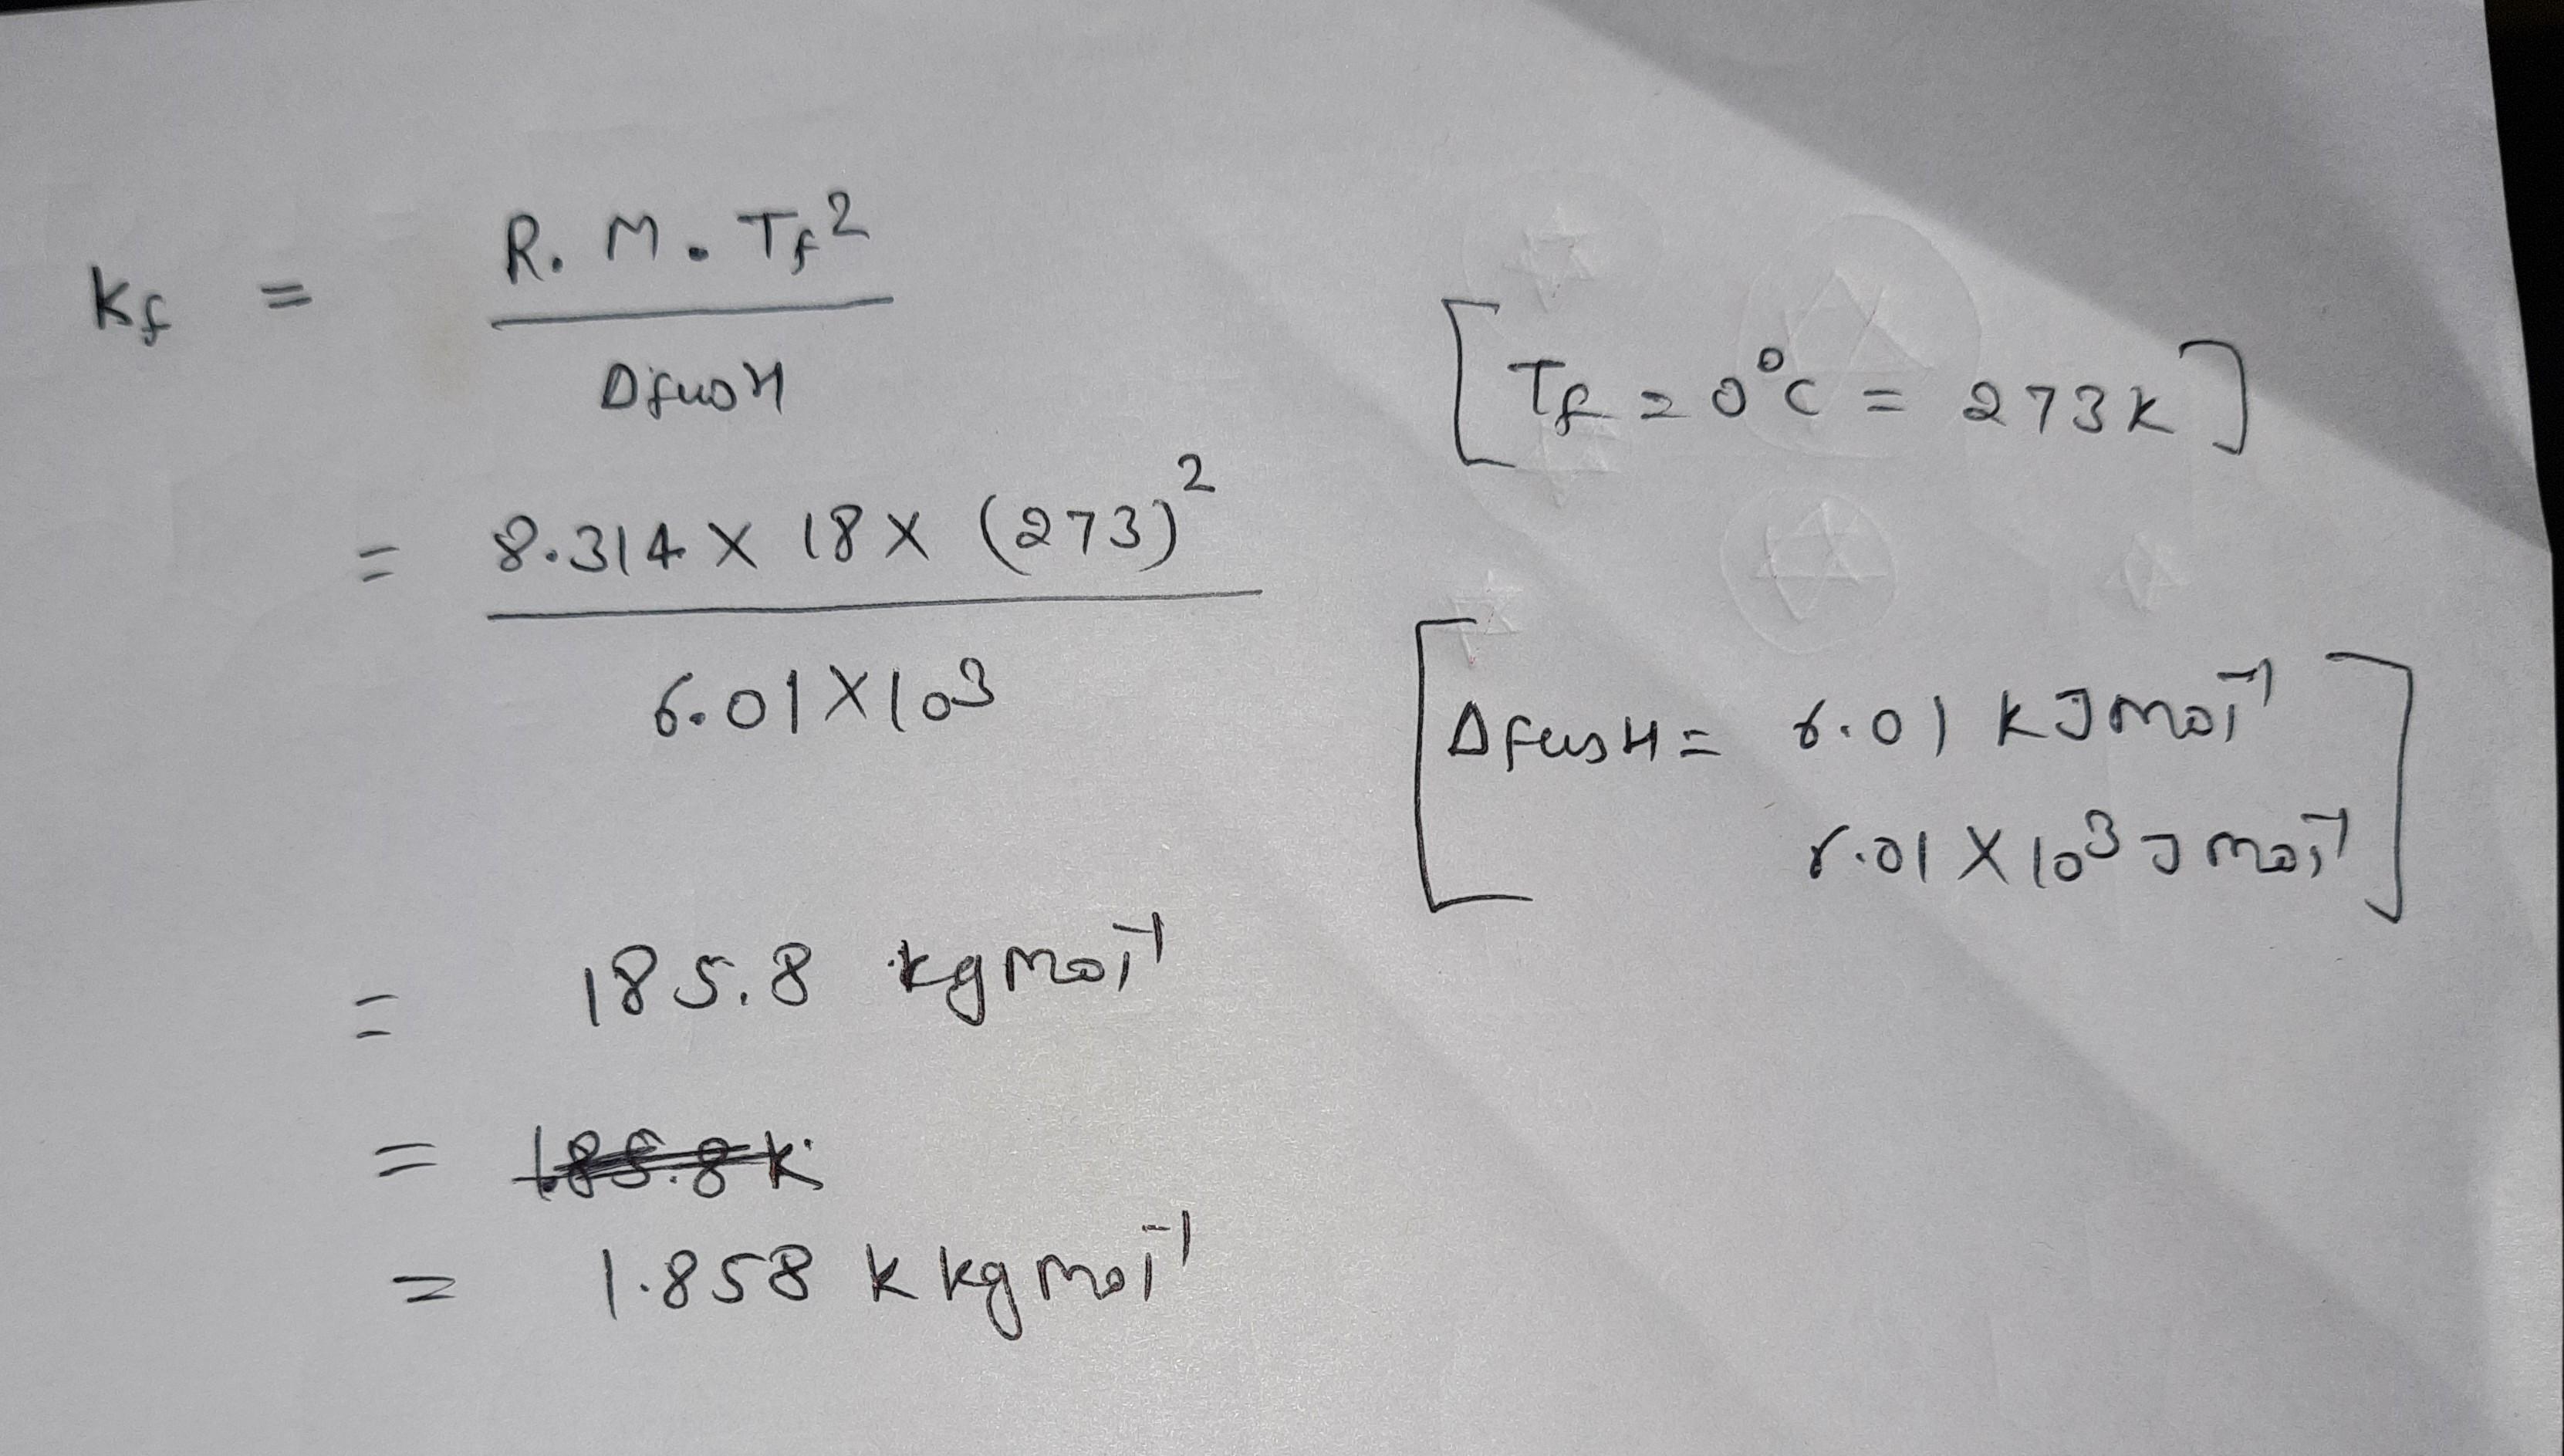 Kf = R. M. Tf²
ΔfusH
[Tf = 0°C = 273K]
= 8.314 X 18 X (273)²
6.01 X 10³
[ΔfusH = 6.01 KJ mol⁻¹
6.01 X 10³ J mol⁻¹]
= 185.8 kg mol⁻¹
= 185.8 K
= 1.858 K kg mol⁻¹